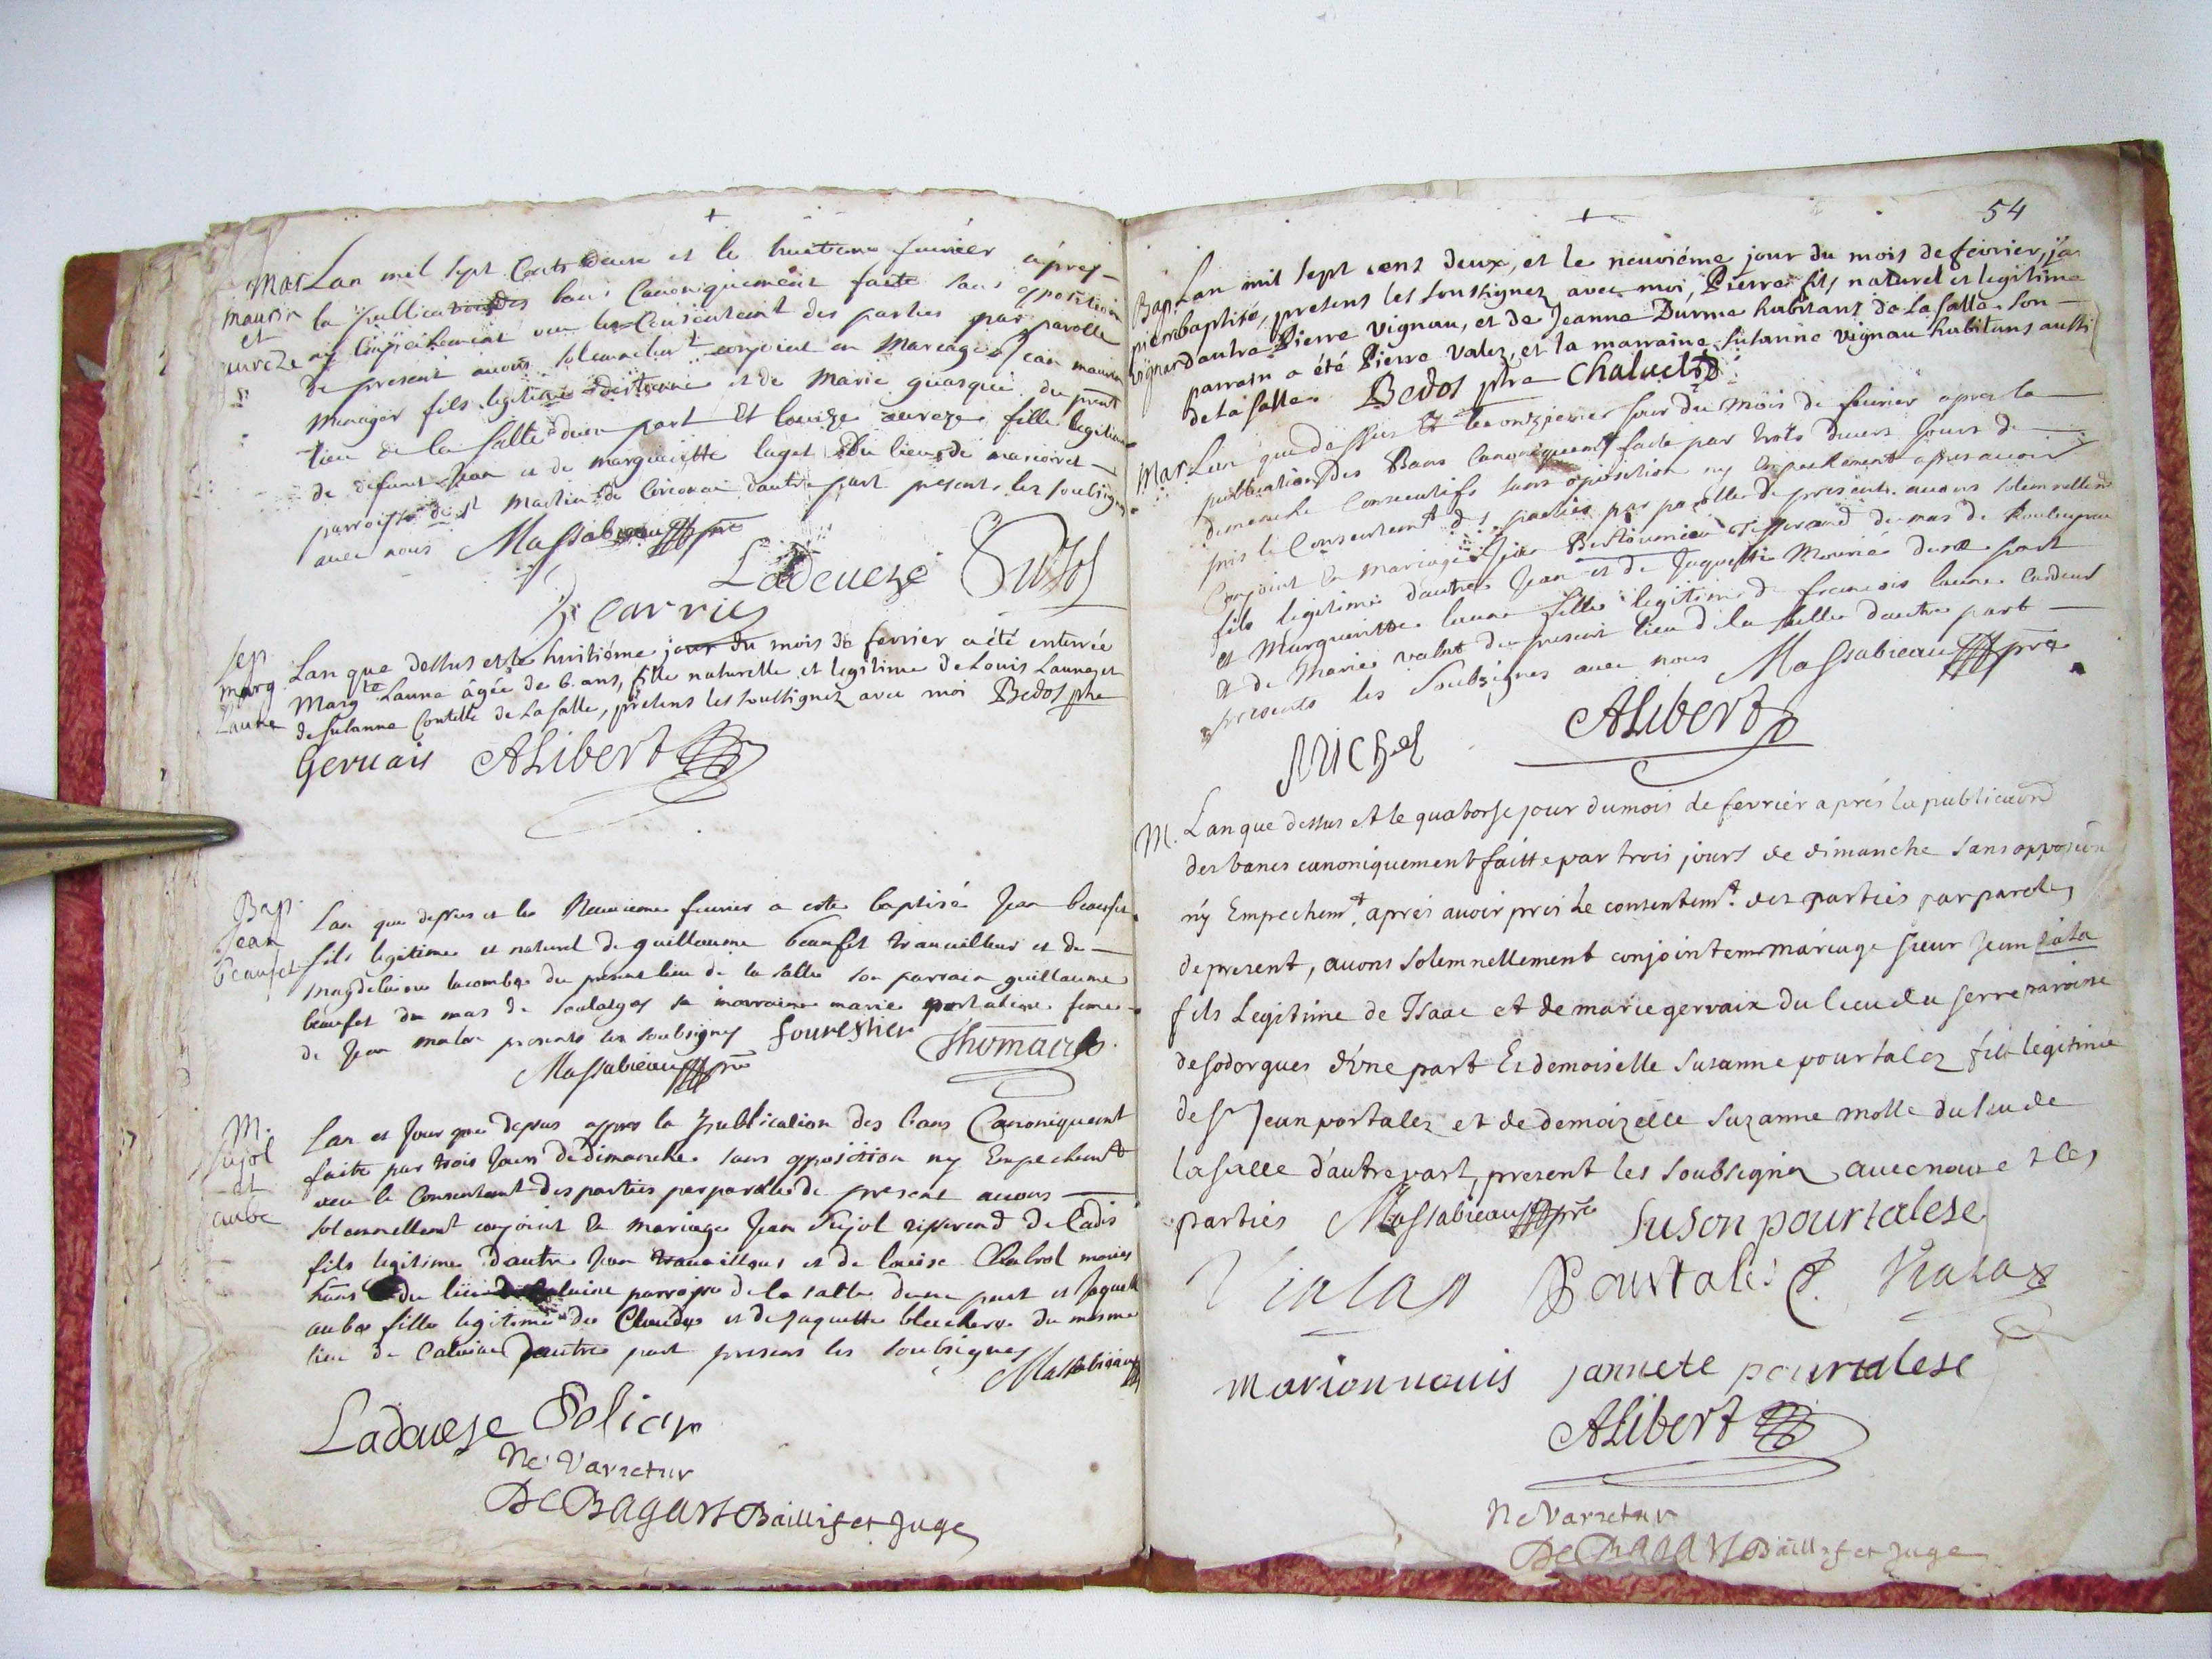 Mar Lan mil sept Cents deux et le huitieme feuvrier apres
maurin la publication des bans Canoniquement faite sans opposition
et
auveze ny Empeichement veu le Consentement des parties par parolle
de present avons solemnelmt conjoint en Mariage Jean maurin
menager fils legitime destienne et de Marie guasque du pnt
lieu de la salle dune part Et louize auveze fille legitime
de defunct Jean et de margueritte laget du lieu de
parroisse de st Martin de Corconac dautre part presents les soubsignes
avec nous Massabieau pre
Ladeveze
Carrie
Sep Lan que dessus et le huitiéme jour du mois de fevrier a été enterrée
Marg Margte Laune âgée de 6 ans, fille naturelle et legitime de Louis Laune, et
Laune de Susanne Contelle de La Salle, présens les soussignez avec moi Bedos ptre
Gervais ALibert
Bap. Lan que dessus et le Neuvieme fevrier a este baptisé Jean beaufet
Jean
beaufet fils legitime et naturel de guillaume beaufet travailleur et de
magdelaine lacombe du present lieu de la salle son parrain guillaume
beaufet du mas de soulatges sa marraine marie portaliere feme
de Jean presants les soubsignes fourestier Thomas
Massabieau pre
M. Lan et Jour que dessus apres la publication des bans Canoniquemt
pujol faite par trois Jours de dimanche sans opposition ny Empechemt
et veu le Consentemt des parties par parolles de present avons
aube solemnellemt conjoint en mariage Jean Pujol tisserand de Cadis
fils legitime dautre Jean travailleur et de louise Chabrol maries
du lieu de Calviac parroisse de la salle dune part et Jaquete
aube fille legitime de Claude et de Jaquette du mesme
lieu de Calviac dautre part presens les soubsignes
Massabieau
Ladeveze Solier
Ne Varietur
De Bagars Baillif et Juge
54
Bap. Lan mil sept cens deux, et le neuviéme jour du mois de feivrier, j'ai
pierre baptisé, presens les soussignez avec moi, Pierre fils naturel et legitime
vignau d'autre Pierre Vignau, et de Jeanne Durme habitans de La Salle. Son
parrain a été Pierre Valez, et la marraine Susanne Vignau habitans aussi
de la Salle. Bedos ptre Chalvet
Mar Lan que dessus Et le onzieme Jour du mois de fevrier apres la
publication des Bans Canoniquemt faite par trois divers Jours de
dimanche Consecutifs sans oposition ny Empechement apres avoir
pris le Consentemt des parties par parolles de presents avons solemnellemt
Conjoint En mariage Jean tisserand du mas de
fils legitime dautre Jean et de Jaquette dune part
et Margueritte laune fille legitime de francois laune Cardeur
et de Marie valat du present lieu de la salle dautre part
presents les Soubsignes avec nous Massabieau pre
Michel ALibert
M. Lan que dessus et le quatorse jour du mois de fevrier aprés la publication
des bancs canoniquement faitte par trois jours de dimanche sans opposion
n'y Empechemt, aprés avoir pris Le consentemt des parties par paroles
de present, avons solemnellement conjoint em mariage sieur Jean
fils Legitime de Isaac et de marie gervaix du lieu du serre paroisse
de sodorgues d'vne part Et demoiselle Susanne pourtalez fille legitime
de sr Jean portalez et de demoizelle Suzanne molle du lieu de
lasalle d'autre part, present les soubsignez avec nous et les
parties Massabieau pre Suson pourtalese
Vialas Pourtales J. Vialas
marion nouis jannete pourtalese
ALibert
Ne Varietur
De Bagars Baillif et Juge